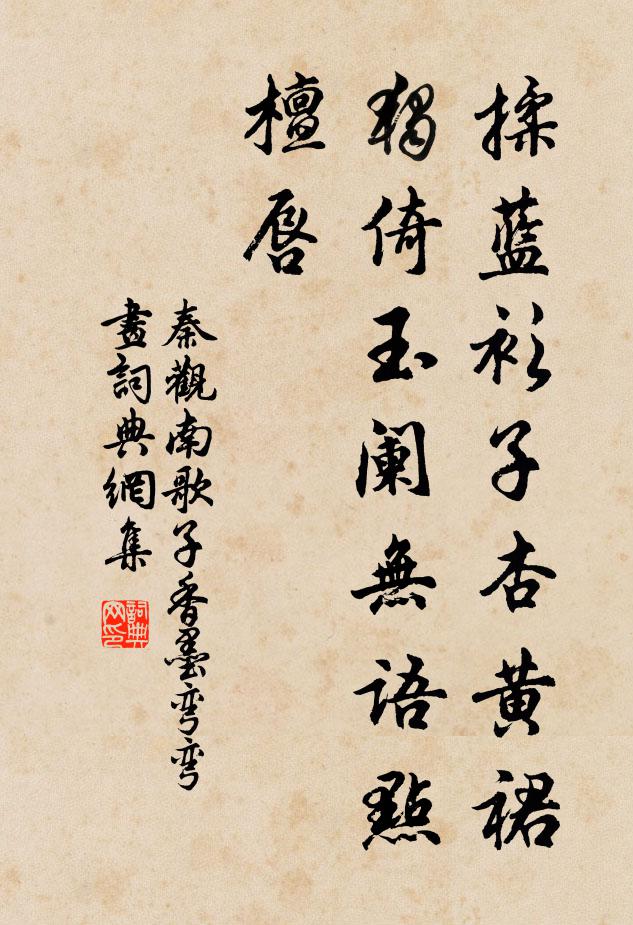 揉藍衫子杏黃裙
獨倚玉阑無語點
檀唇
秦觀南歌子香墨弯弯
畫詞典網集
詞典
网印